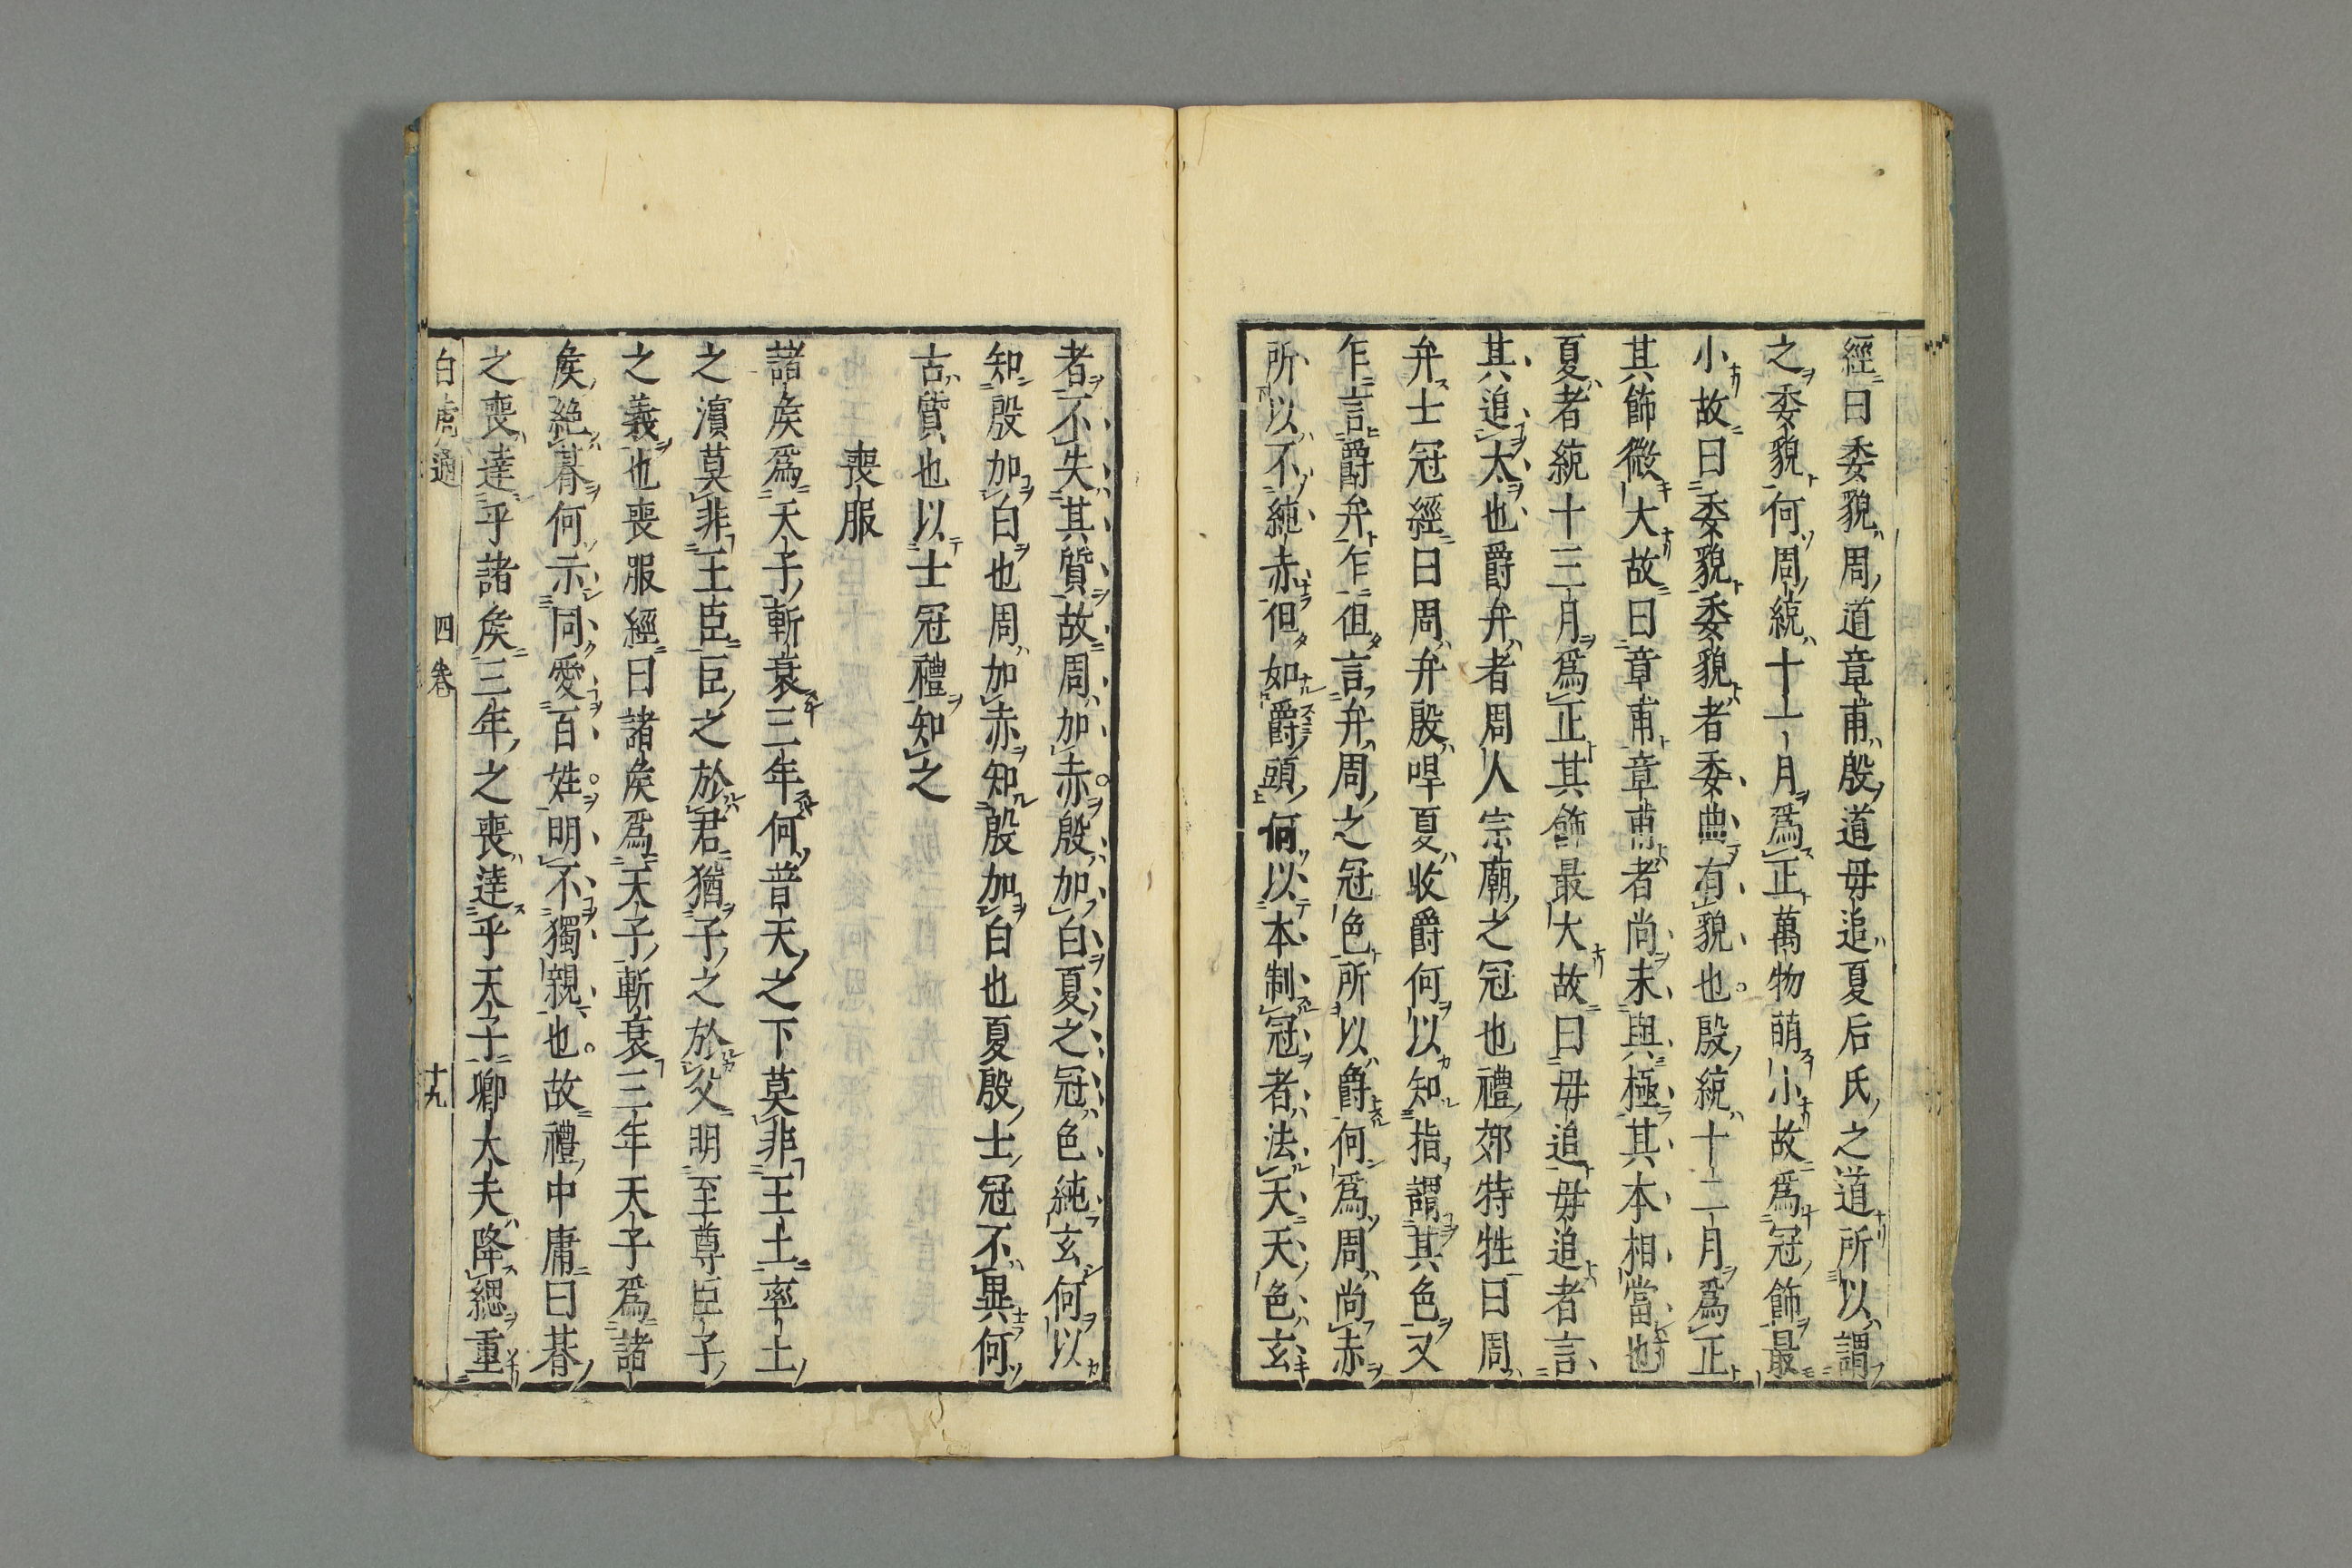 經曰委貌周道章甫殷道毋追夏后氏之道所以謂
之委貌何周統十一月爲正萬物萌小故爲冠飾最
小故曰委貌委貌者委曲有貌也殷統十二月爲正
其飾微大故曰章甫章甫者尚未與極其本相當也
夏者統十三月爲正其飾最大故曰毋追毋追者言
其追大也爵弁者周人宗廟之冠也禮郊特牲曰周
弁士冠經曰周弁殷哻夏收爵何以知指謂其色又
乍言爵弁乍但言弁周之冠色所以爵何爲周尚赤
所以不純赤但如爵頭何以本制冠者法天天色玄
者不失其質故周加赤殷加白夏之冠色純玄何以
知殷加白也周加赤知殷加白也夏殷士冠不異何
古質也以士冠禮知之
喪服
諸矦爲天子斬衰三年何普天之下莫非王土率土
之濵莫非王臣臣之於君猶子之於父明至尊臣子
之義也喪服經曰諸矦爲天子斬衰三年天子爲諸
矦絶朞何示同愛百姓明不獨親也故禮中庸曰朞
之喪達乎諸矦三年之喪達乎天子卿大夫降緦重
白虎通 四卷 十九